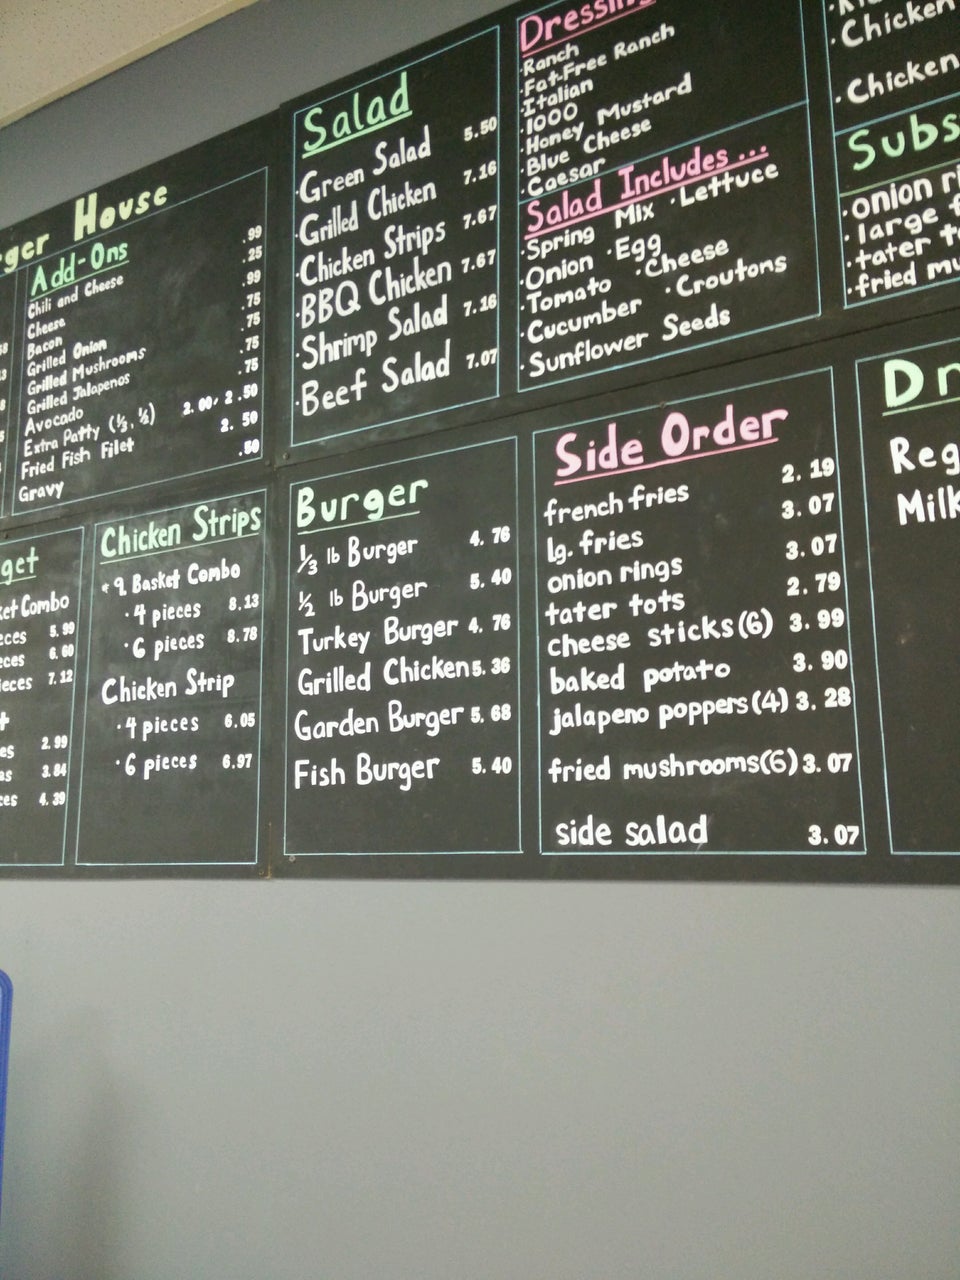 ger House
Add-Ons
Chili and Cheese .99
Cheese .25
Bacon .99
Grilled Onion .75
Grilled Mushrooms .75
Grilled Jalapenos .75
Avocado .75
Extra Patty (⅓, ½) 2.00, 2.50
Fried Fish Filet 2.50
Gravy .50
Salad
·Green Salad 5.50
·Grilled Chicken 7.16
·Chicken Strips 7.67
·BBQ Chicken 7.67
·Shrimp Salad 7.16
·Beef Salad 7.07
Dressing
·Ranch
·Fat-Free Ranch
·Italian
·1000
·Honey Mustard
·Blue Cheese
·Caesar
Salad Includes...
·Spring Mix ·Lettuce
·Onion ·Egg
·Tomato ·Cheese
·Cucumber ·Croutons
·Sunflower Seeds
·Chicken
·Chicken
Subs
·onion ri
·large f
·tater t
·fried mu
get
ket Combo
eces 5.99
eces 6.60
ieces 7.12
es 2.99
as 3.84
ces 4.39
Chicken Strips
*9 Basket Combo
·4 pieces 8.13
·6 pieces 8.78
Chicken Strip
·4 pieces 6.05
·6 pieces 6.97
Burger
⅓ lb Burger 4.76
½ lb Burger 5.40
Turkey Burger 4.76
Grilled Chicken 5.36
Garden Burger 5.68
Fish Burger 5.40
Side Order
french fries 2.19
lg. fries 3.07
onion rings 3.07
tater tots 2.79
cheese sticks(6) 3.99
baked potato 3.90
jalapeno poppers(4) 3.28
fried mushrooms(6) 3.07
side salad 3.07
Dr
Reg
Milk